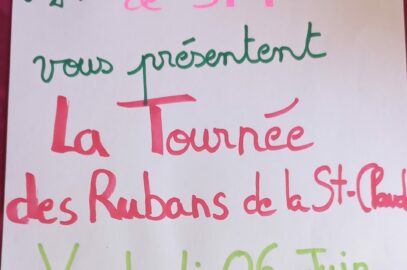 vous présentent
La Tournée
des Rubans de la St-Claude
06 Juin